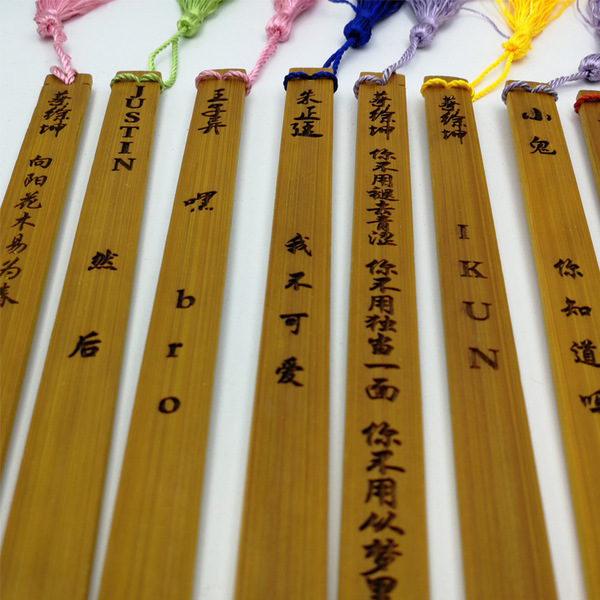 蔡徐坤
向阳花木易为春
JUSTIN
然后
王子异
嘿
bro
朱正廷
我不可爱
蔡徐坤
你不用褪去青涩
你不用独当一面
你不用以梦里
蔡徐坤
IKUN
小鬼
你知道吗